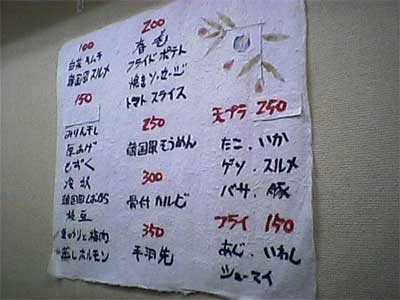 100
白菜キムチ
韓国風スルメ
150
みりん干し
厚あげ
もずく
冷奴
枝豆
きゅうりと梅肉
蒸しホルモン
200
春巻
フライドポテト
焼きソーセージ
トマトスライス
250
韓国風そうめん
300
骨付カルビ
350
手羽先
天プラ 250
たこ．いか
ゲソ．スルメ
バサ．豚
フライ 150
あじ．いわし
シューマイ